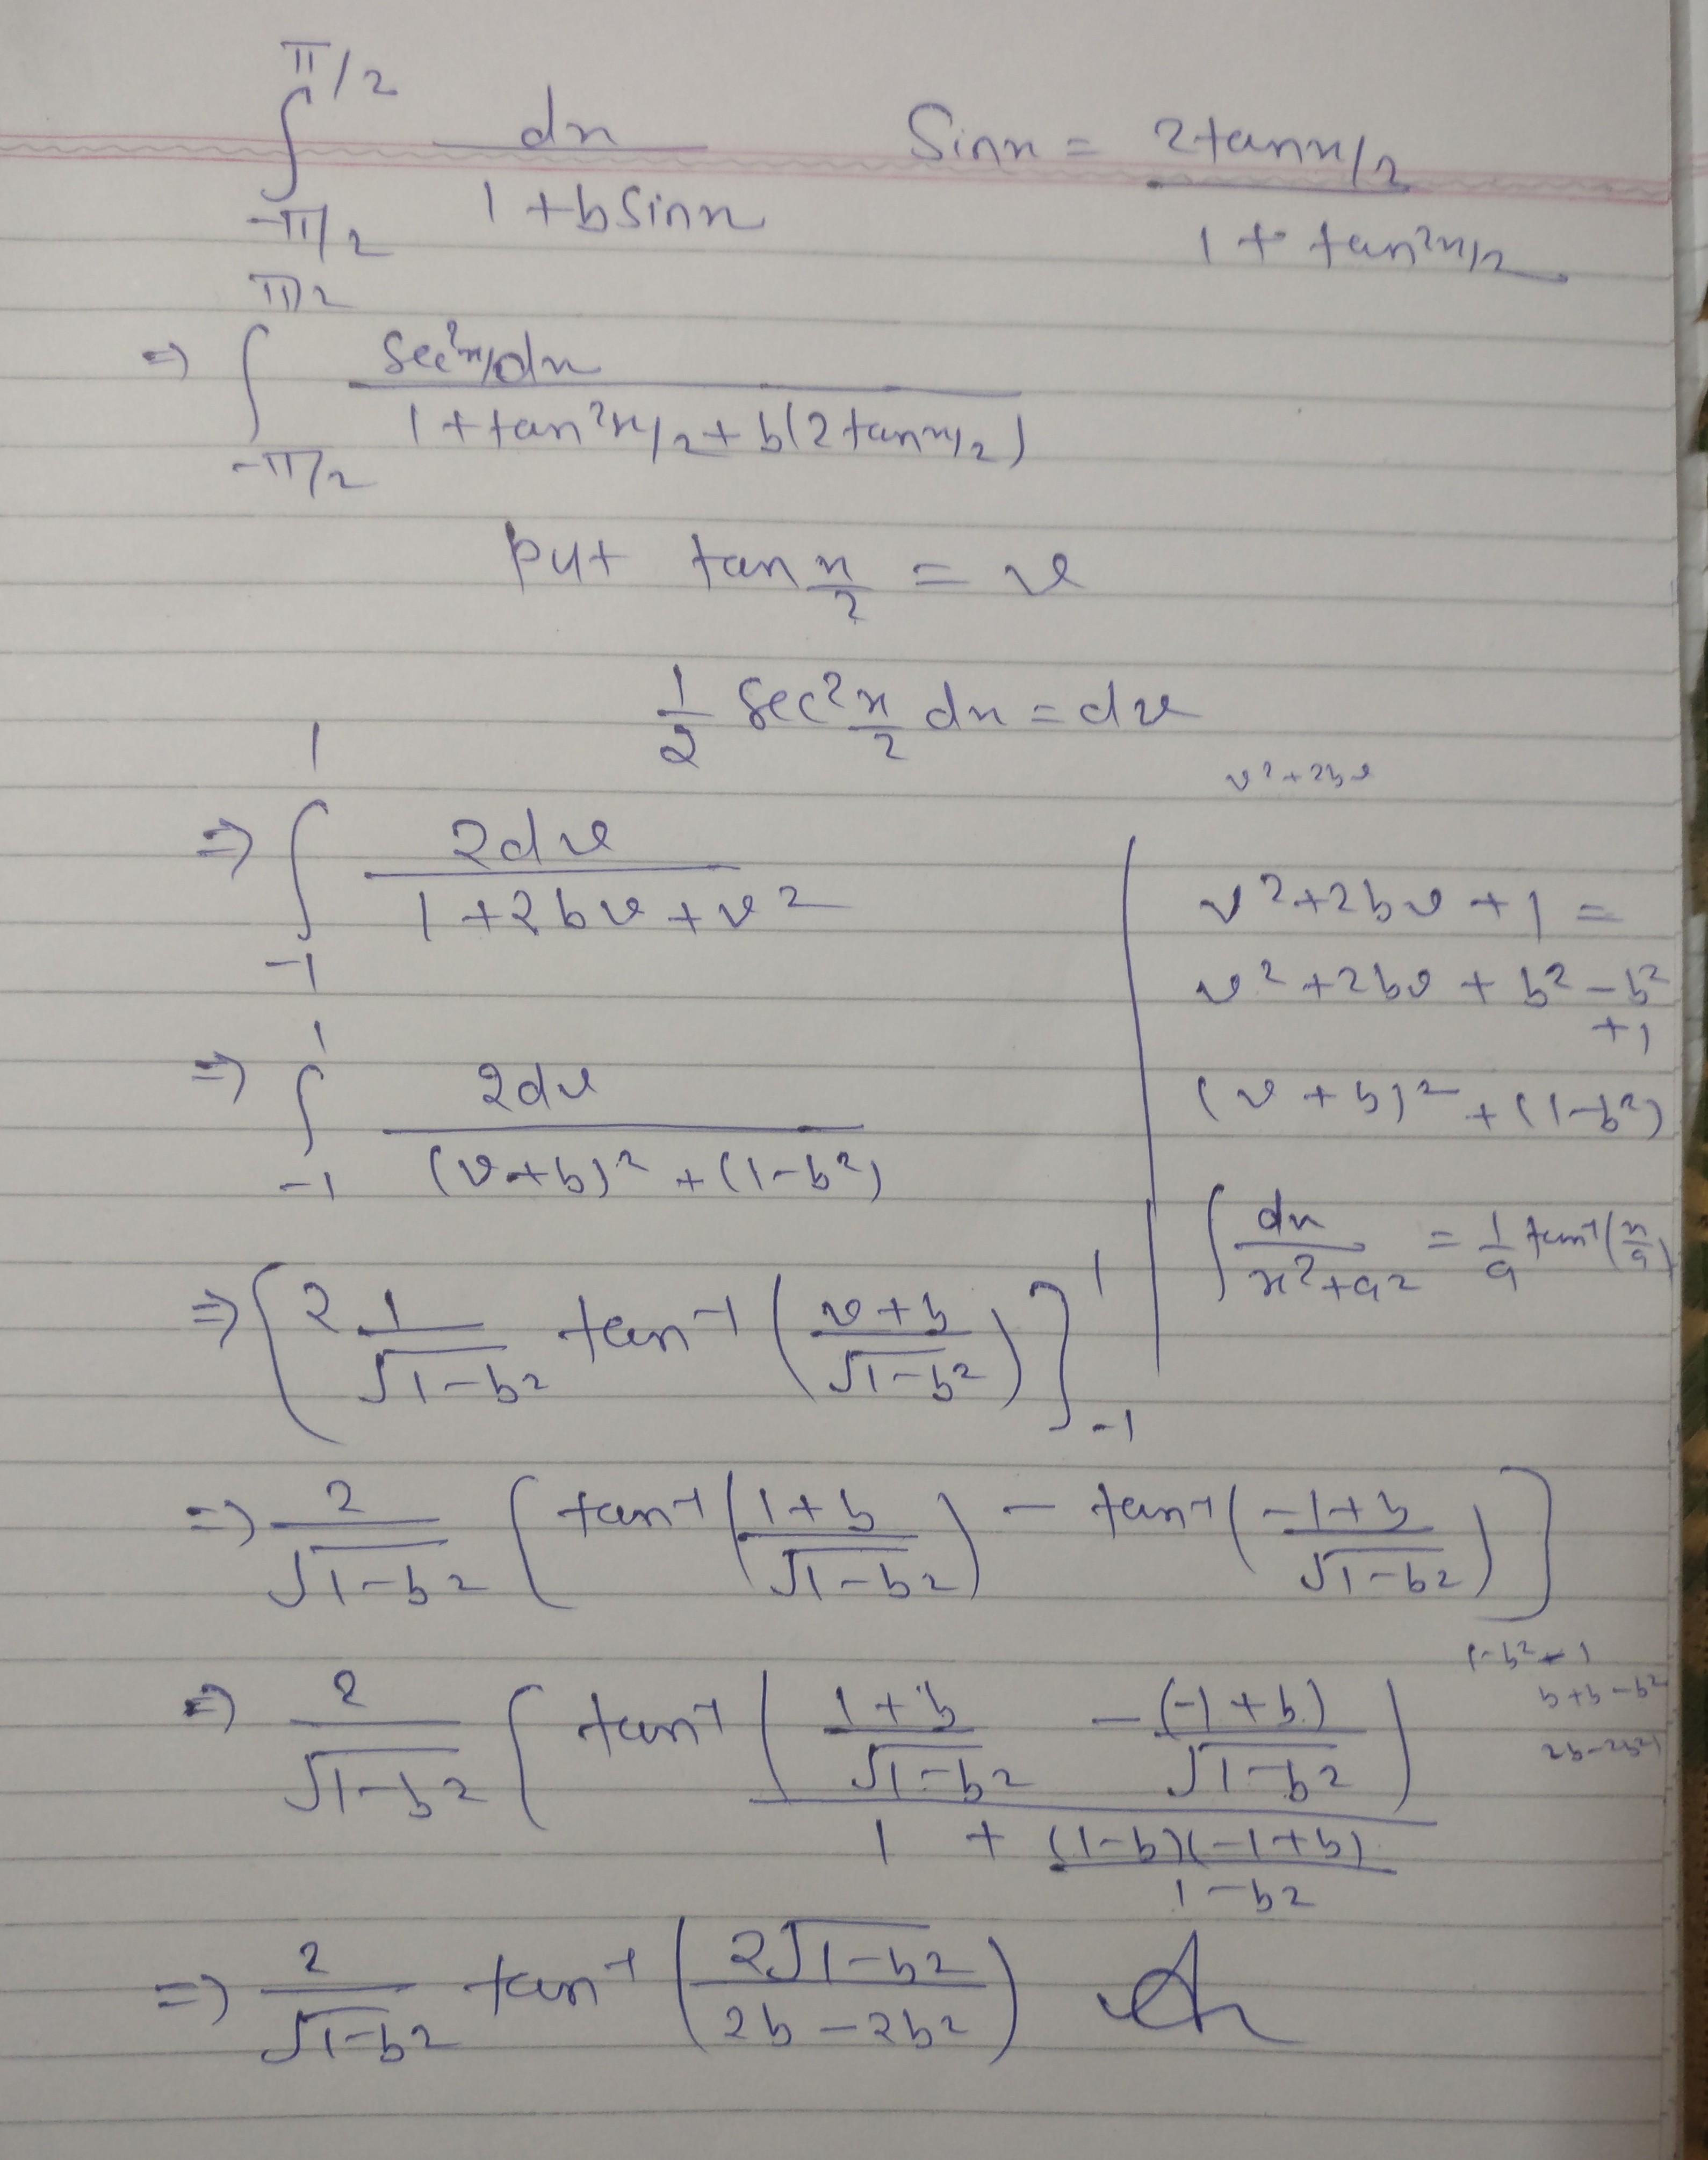 ∫_{-π/2}^{π/2} dx / (1 + b sinx)    Sinx = 2tanx/2 / (1 + tan²x/2)
⇒ ∫_{-π/2}^{π/2} Sec²x/2 dx / (1 + tan²x/2 + b(2tanx/2))
put tan x/2 = v
1/2 Sec² x/2 dx = dv
v²+2bv
⇒ ∫_{-1}^{1} 2dv / (1 + 2bv + v²)
v²+2bv+1 =
v²+2bv + b² - b²
+1
(v+b)² + (1-b²)
⇒ ∫_{-1}^{1} 2dv / ((v+b)² + (1-b²))
∫ dx / (x²+a²) = 1/a tan⁻¹(x/a)
⇒ [2 1/√1-b² tan⁻¹((v+b)/√1-b²)]_{-1}^{1}
⇒ 2/√1-b² [tan⁻¹((1+b)/√1-b²) - tan⁻¹((-1+b)/√1-b²)]
b+b-b²
⇒ 2/√1-b² [tan⁻¹(((1+b)/√1-b² - (-1+b)/√1-b²) / (1 + (1-b)(-1+b)/(1-b²)))
⇒ 2/√1-b² tan⁻¹(2√1-b² / (2b-2b²))